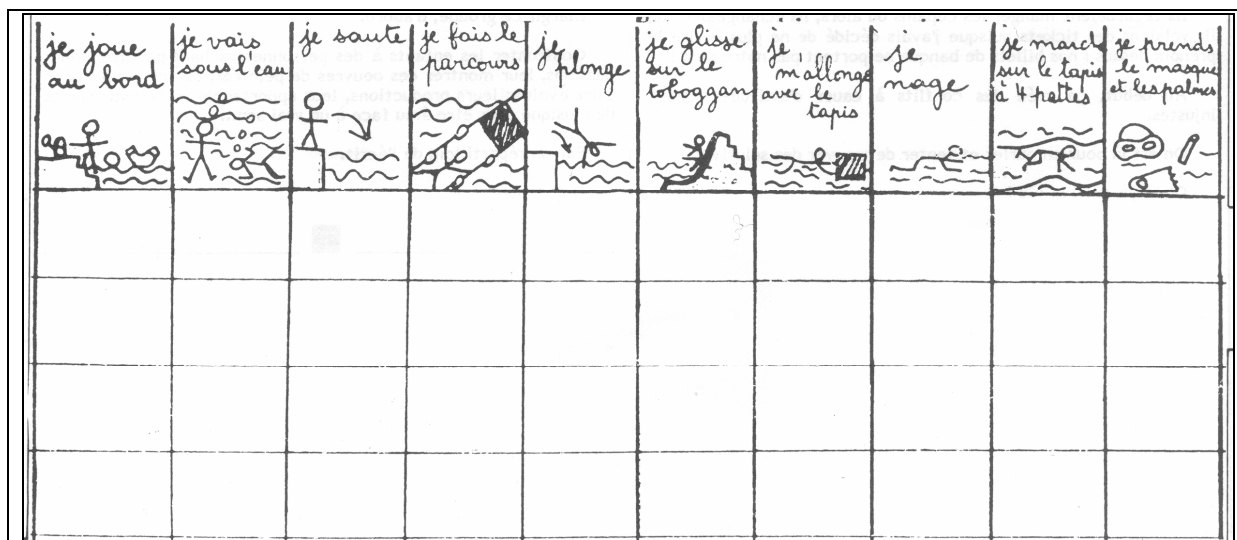 je joue
au bord
je vais
sous l'eau
je saute
je fais le
parcours
je
plonge
je glisse
sur le
toboggan
je
m'allonge
avec les
tapis
je
nage
je marche
sur le tapis
à 4 pattes
je prends
le masque
et les palmes